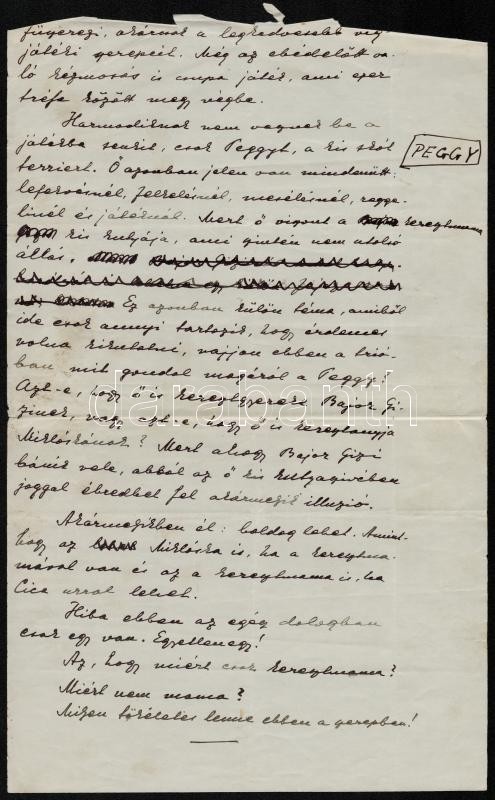 játszi szerepeit. Még az ebédelőtt va-
ló kézmosás is csupa játék, ami ezer
tréfa között megy végbe.
Harmadiknak nem vesznek be a
játékba senkit, csak Peggyt, a kis skót
PEGGY
terriert. Ő azonban jelen van mindenütt:
lefekvésnél, felkelésnél, mesélésnél, regge-
linél és játéknál. Mert ő viszont a keresztmama
kis kutyája, ami szintén nem utolsó
állás.
Ez azonban külön téma, amiből
ide csak annyi tartozik, hogy érdemes
volna kikutatni, vajjon ebben a trió-
ban mit gondol magáról a Peggy?
Azt-e, hogy ő is keresztgyereke Bajor Gi-
zinek, vagy azt-e, hogy ő is keresztanyja
Miklóskának? Mert ahogy Bajor Gizi
bánik vele, abból az ő kis kutyaszivében
joggal ébredhet fel akármelyik illuzió.
Akármelyikben él: boldog lehet. Amint-
hogy az Miklóska is, ha a keresztma-
mával van és az a keresztmama is, ha
Cica urral lehet.
Hiba ebben az egész dologban
csak egy van. Egyetlenegy!
Az, hogy miért csak keresztmama?
Miért nem mama?
Milyen tökéletes lenne ebben a szerepben!
darabanth